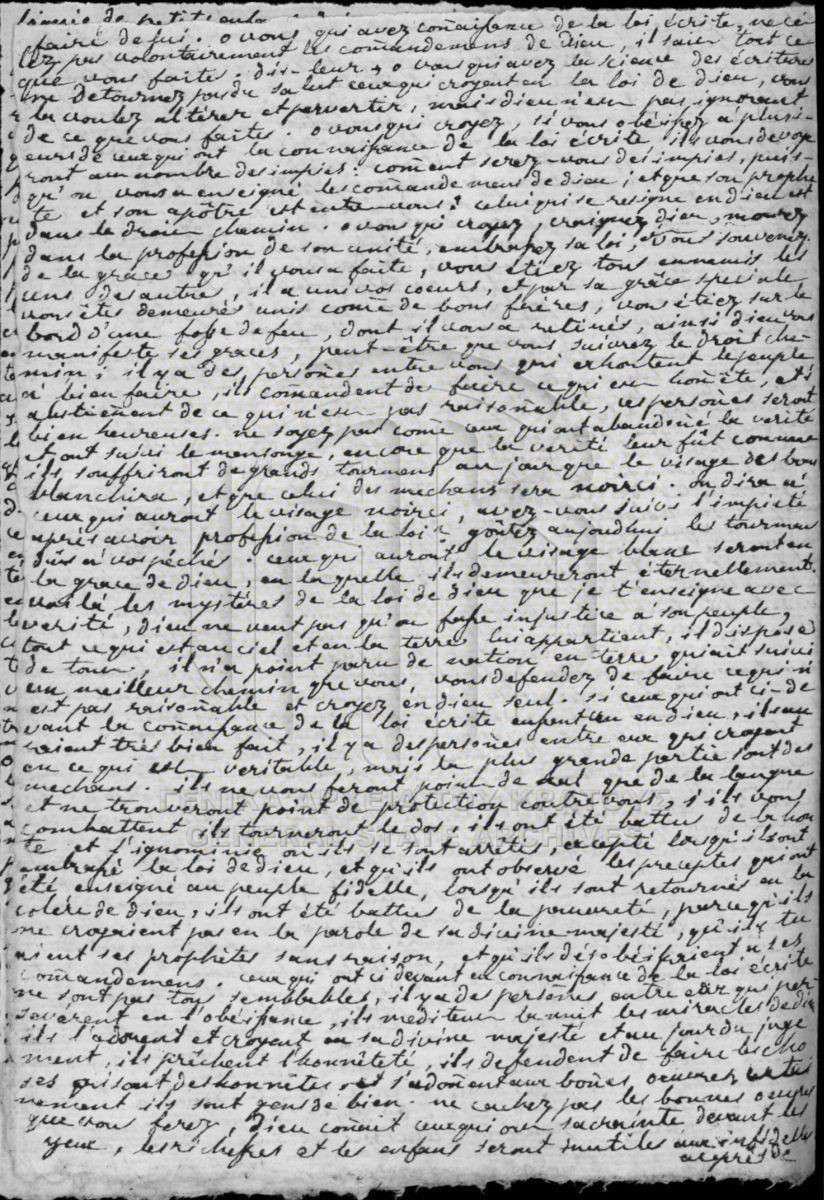 faire de lui. o vous qui avez connaissance de la loi écrite, ne cé
lez pas volontairement les comandemens de Dieu, il sait tout ce
que vous faites. dis-leur, o vous qui avez la science des écritures
ne detournez pas du salut ceux qui croyent en la loi de dieu, vous
la voulez altérer et pervertir, mais dieu n'est pas ignorant
de ce que vous faites. o vous qui croyez, si vous obéissez a plusi-
eurs de ceux qui ont la connaissance de la loi écrite, ils vous devoye
ront au nombre des impies: coment serez-vous des impies, puis-
qu'on vous a enseigné les comandemens de dieu; et que son prophe
te et son apôtre est entre vous? celui qui se resigne en dieu est
dans le droit chemin. o vous qui croyez, craignez dieu, mourez
dans la profession de son unité, embrassez sa loi, et vous souvenez
de la grace qu'il vous a faite, vous étiez tous ennemis les
uns des autres, il a uni vos coeurs, et par sa grâce speciale
vous êtes demeurés unis come de bons frères, vous étiez sur le
bord d'une fosse de feu, dont il vous a retirés, ainsi dieu vous
manifeste ses graces, peut-être que vous suivrez le droit che-
min; il y a des persones entre vous qui exhortent le peuple
à bien faire, ils comandent de faire ce qui est honête, et s'
abstienent de ce qui n'est pas raisonable, ces persones seront
bien heureuses. ne soyez pas come ceux qui ont abandoné la verité
et ont suivi le mensonge, encore que la verité leur fût connue
ils souffriront de grands tourmens au jour que le visage des bons
blanchira, et que celui des mechans sera noirci. on dira à
ceux qui auront le visage noirci, avez-vous suivi l'impieté
après avoir profession de la loi? goûtez aujourdhui les tourmens
dûs à vos péchés. ceux qui auront le visage blanc seront en
la grace de dieu, en laquelle ils demeureront éternellement.
voilà les mystères de la loi de dieu que je t'enseigne avec
verité, dieu ne veut pas qu'on fasse injustice à son peuple,
tout ce qui est au ciel et en la terre lui appartient, il dispose
de tout, il n'a point paru de nation en terre qui ait suivi
un meilleur chemin que vous, vous defendez de faire ce qui n'
est pas raisonable et croyez en dieu seul. si ceux qui ont ci-de
vant la conaissance de la loi écrite eussent cru en dieu, ils au
raient très bien fait, il y a des persones entre eux qui croyent
en ce qui est veritable, mais la plus grande partie sont des
mechans. ils ne vous feront point de mal que de la langue
et ne trouveront point de protection contre vous, s'ils vous
combattent ils tourneront le dos, ils ont été battus de la hon
te et l'ignominie où ils se sont arrêtés, excepté lorsqu'ils ont
embrassé la loi de dieu, et qu'ils ont observé les preceptes qui ont
été enseigné au peuple fidelle, lorsqu'ils sont retournés en la
colère de dieu, ils ont été battus de la pauvreté, parcequ'ils
ne croyaient pas en la parole de sa divine majesté, qu'ils tu
aient ses prophètes sans raison, et qu'ils désobéissaient à ses
comandemens. ceux qui ont ci devant eu connaissance de la loi écrite
ne sont pas tous semblables, il y a des persones entre eux qui per-
severent en l'obéissance, ils meditent la nuit les miracles de dieu
ils l'adorent et croyent en sa divine majesté et au jour du juge
ment, ils prêchent l'honnêteté, ils defendent de faire les cho
ses qui sont deshonnêtes, et s'adonent aux bones oeuvres
nement ils sont gens de bien. ne cachez pas les bonnes oeuvres
que vous ferez, dieu connait ceux qui ont sa crainte devant les
yeux, les richesses et les enfans seront inutiles aux infidelles
auprès de
CENTRAL STATE ARCHIVES